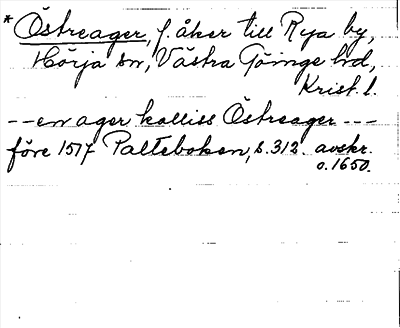 * Östreager, f. åker till Rya by,
Hörja sn, Västra Göinge hd,
Krist. l.
-- en ager kalliss Östreager ---
före 1517 Palteboken, s. 312. avskr.
o. 1650.